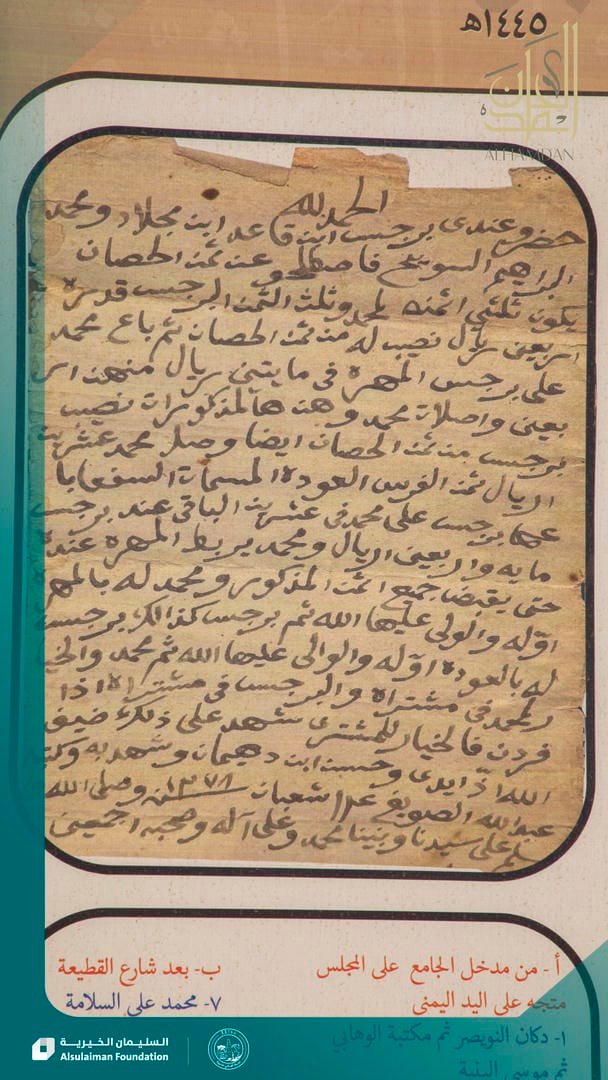 ١٤٤٥هـ
ALHAMDAN
الحمد لله
حضر وعندي برجس ابن قاعد ابن مجلاد ومحمد
البراهيم السويح فاصطلحو عن ثمن الحصان
يكون ثلثي اثمنه لمحمد وثلث الثمن البرجس قدره
اربعين ريال نصيب له من ثمن الحصان ثم باع محمد
على برجس المهره في مايتين ريال منهن ار
بعين واصلات محمد وهن هالمذكورات نصيب
برجس من ثمن الحصان ايضا وصل محمد عشرين
الريال ثمن الفرس العوده المسمات السفعا با
عها برجس على محمد في عشرين الباقي عند برجس
مايه واربعين الريال ومحمد يربط المهره عنده
حتى يقبض جميع اثمن المذكور ومحمد له بالمهره
اوله والولي عليها الله ثم برجس كذالك برجس
له بالعوده اوله والوالي عليها الله ثم محمد والخيار
لمحمد في مشتراه والبرجس في مشتراه اذا
فردن فالخيار للمشتري شهد على ذلك ضيف
الله اذايدي وحسن ابن دهيمان وشهد به وكتبه
عبد الله الصويغ شعبان سنة ١٣٧٨ وصلى الله
وسلم على سيدنا ونبينا محمد وعلى آله وصحبه اجمعين
أ - من مدخل الجامع على المجلس
متجه على اليد اليمنى
١- دكان النويصر ثم مكتبة الوهابي
ثم موسى البلية
ب- بعد شارع القطيعة
٧- محمد علي السلامة
السليمان الخيرية
Alsulaiman Foundation